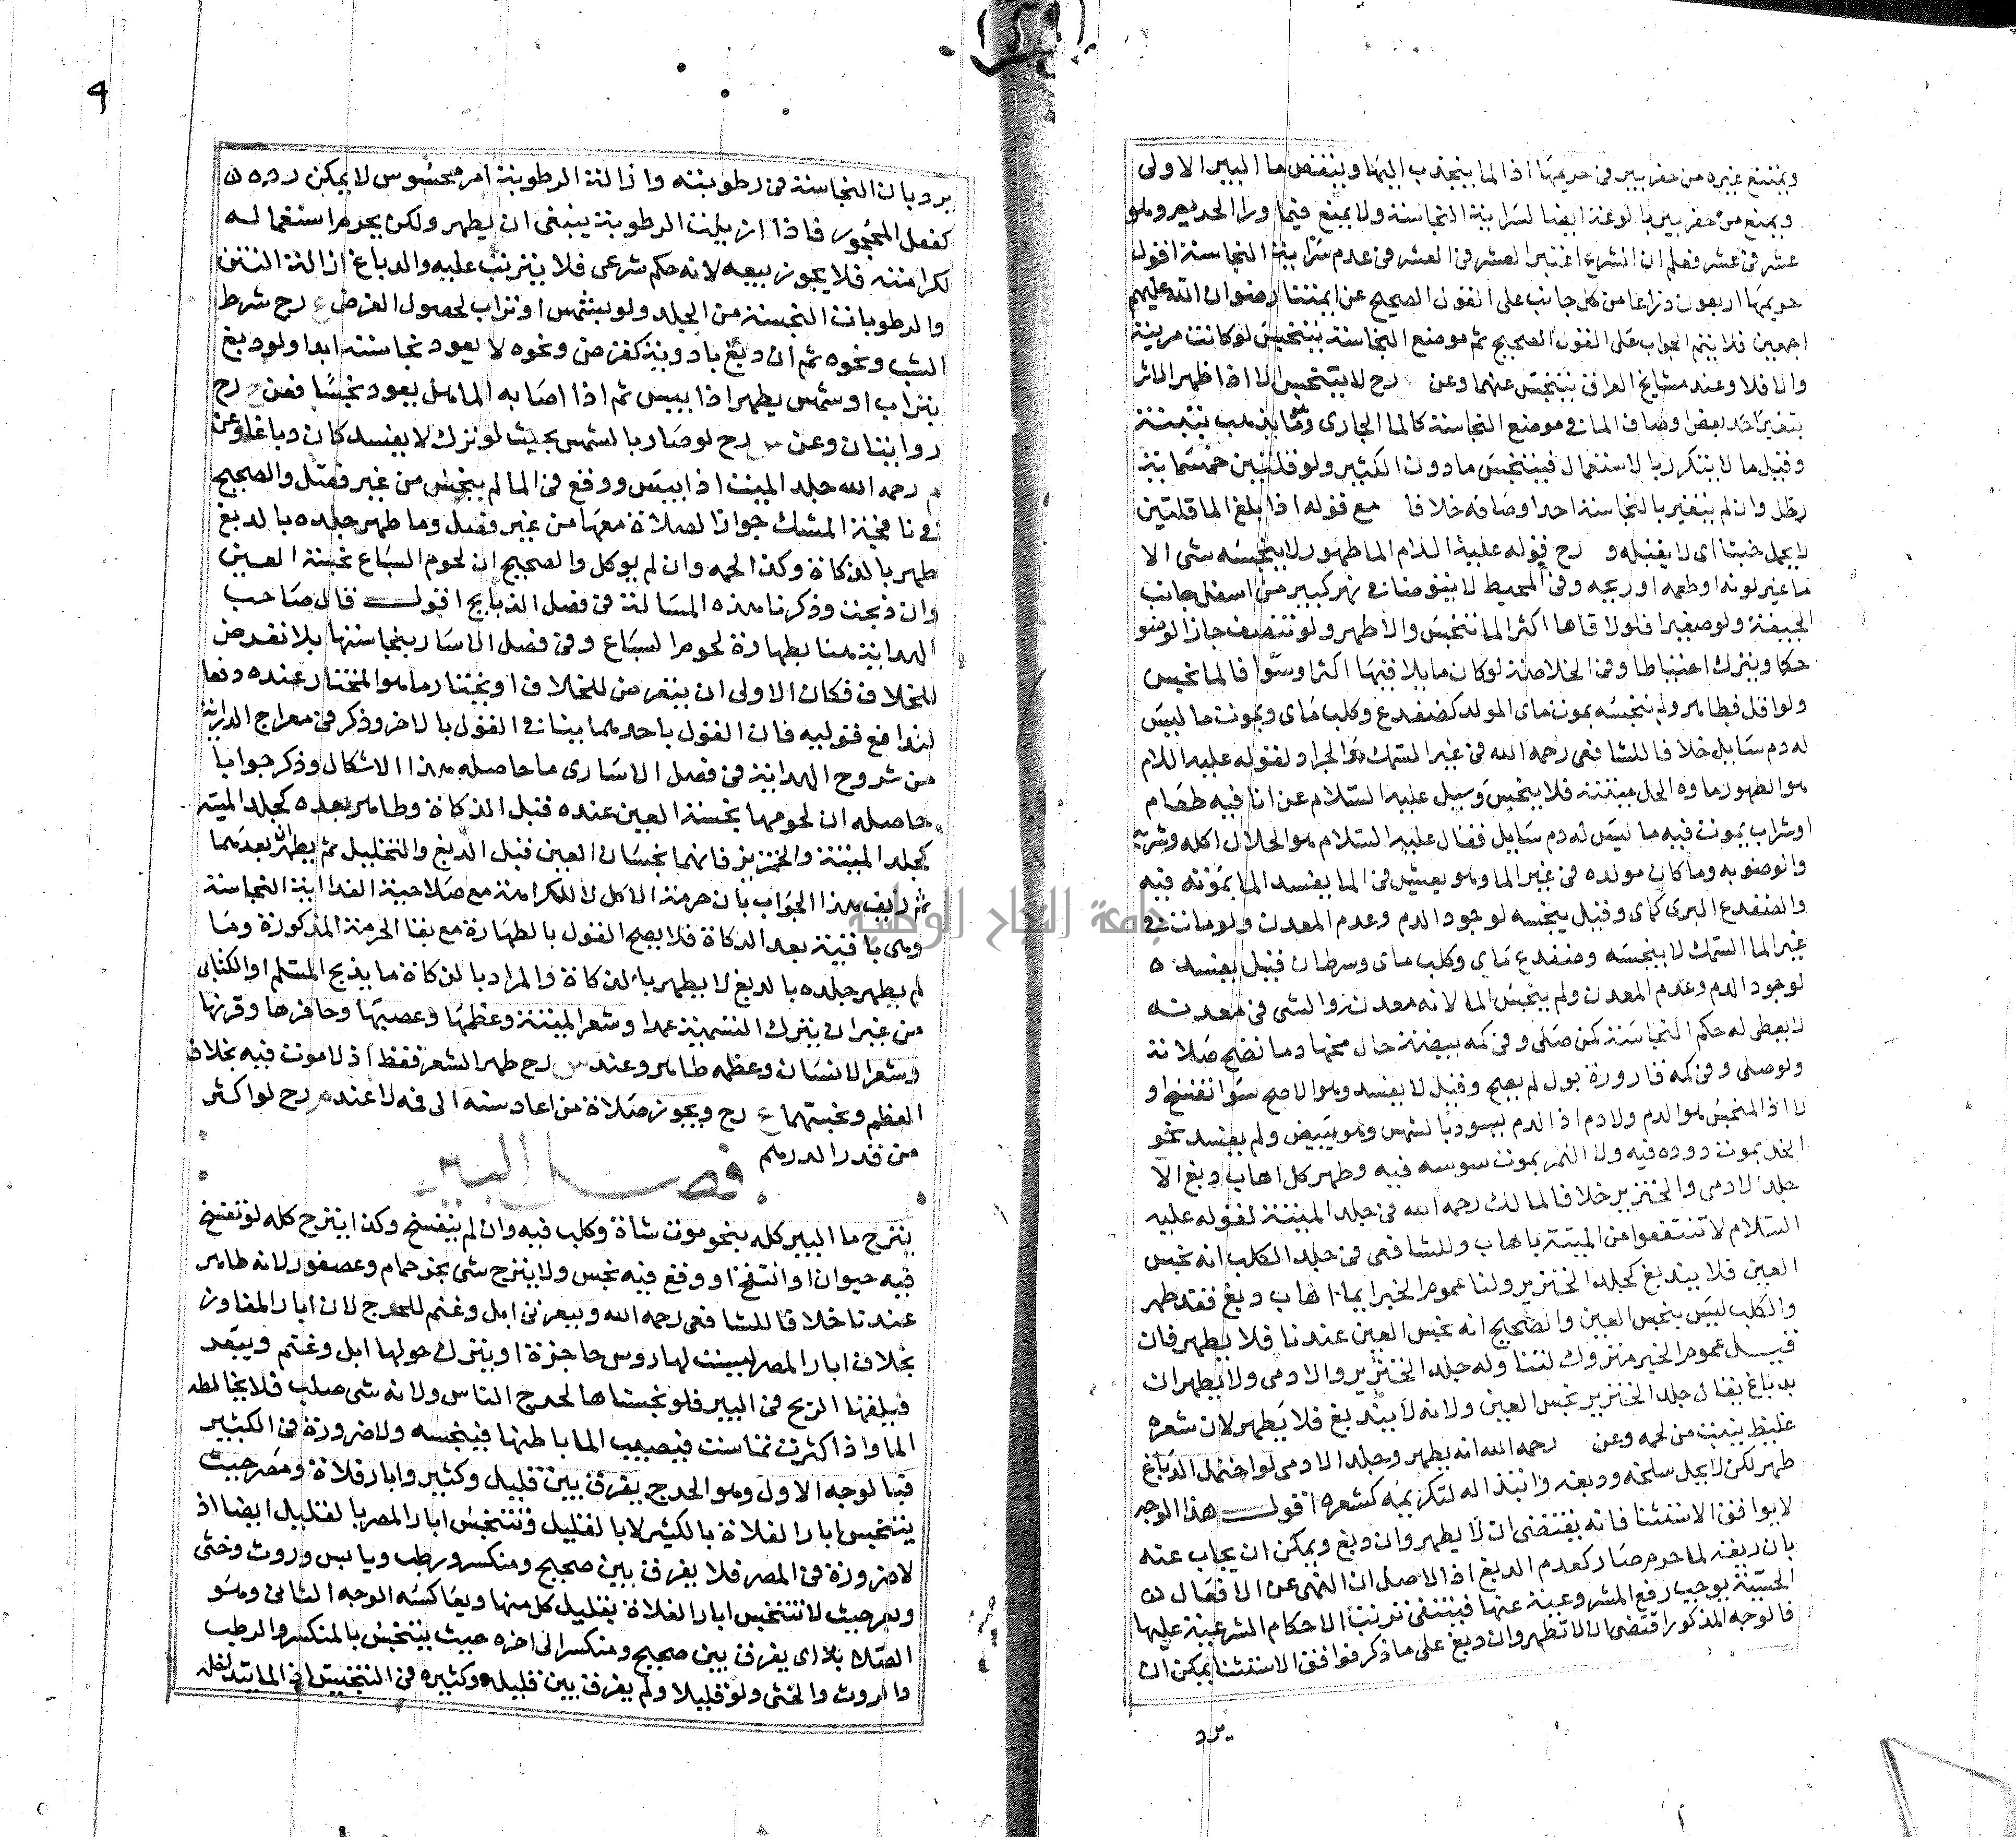 ويمتنع غيره من حفر بير في حريمها اذ الما ينجذب اليها وينقص ما البير الاولى
ويمنع من حفر بير بالوعة ايضا لسراية النجاسة ولا يمنع فيما ورا الحريم وهو
عشر في عشر فعلم ان الشرع اعتبر العشر في العشر في عدم سراية النجاسة اقول
حريمها اربعون ذراعا من كل جانب على القول الصحيح عن ايمتنا رضوان الله عليهم
اجمعين فلا يتم الجواب على القول الصحيح ثم موضع النجاسة يتنجس لو كانت مريية
والا فلا وعند مشايخ العراق يتنجس عنهما وعن رح لا يتنجس الا اذا ظهر الاثر
بتغير احد بعض اوصاف الما في موضع النجاسة كالما الجاري وهو ما يذهب بتبنة
وقيل ما لا يتكرر بالاستعمال فيتنجس ما دون الكثير ولو قلتين خمسماية
رطل وان لم يتغير بالنجاسة احد اوصافه خلافا مع قوله اذا بلغ الما قلتين
لا يحمل خبثا اى لا يقبله و رح قوله عليه السلام الما طهور لا ينجسه شى الا
ما غير لونه او طعمه او ريحه وفي المحيط لا يتوضا من نهر كبير من اسفل جانب
الجيفة ولو صغيرا فلو لاقاها اكثر الما تنجس والا طهر ولو تنصف جاز الوضو
حكما ويترك احتياطا وفي الخلاصة لو كان ما يلاقيها اكثر او سوا فالما نجس
ولو اقل فطاهر ولم ينجسه بموت ماى المولد كضفدع وكلب ماى وبموت ما ليس
له دم سايل خلافا للشافعى رحمه الله في غير السمك والجراد لقوله عليه السلام
هو الطهور ماوه الحل ميتته فلا ينجس وسيل عليه السلام عن انا فيه طعام
او شراب يموت فيه ما ليس له دم سايل فقال عليه السلام هو الحلال اكله وشربه
والوضو به وما كان مولده في غير الما وهو يعيش في الما يفسد الما بموته فيه
والضفدع البرى كماى وقيل ينجسه لوجود الدم وعدم المعدن ولو مات في
غير الما السمك لا ينجسه وضفدع ماى وكلب ماى وسرطان قيل يفسده
لوجود الدم وعدم المعدن ولم ينجس الما لانه معدن والشى في معدنه
لا يعطى له حكم النجاسة كمن صلى وفي كمه بيضة حال محها دما تصح صلاته
ولو صلى وفي كمه قارورة بول لم يصح وقيل لا يفسد وهو الاصح سوا تفسخ او
لا اذ المنجس هو الدم ولا دم اذ الدم يسود بالشمس وهو يبيض ولم يفسد نحو
الخل بموت دوده فيه ولا التمر بموت سوسه فيه وطهر كل اهاب دبغ الا
جلد الادمى والخنزير خلافا لمالك رحمه الله في جلد الميتة لقوله عليه
السلام لا تنتفعوا من الميتة باهاب وللشافعى في جلد الكلب انه نجس
العين فلا يندبغ كجلد الخنزير ولنا عموم الخبر ايما اهاب دبغ فقد طهر
والكلب ليس بنجس العين والصحيح انه نجس العين عندنا فلا يطهر فان
قيل عموم الخبر متروك لتناوله جلد الخنزير والادمى ولا يطهران
بدباغ يقال جلد الخنزير نجس العين ولانه لا يندبغ فلا يطهر لان شعره
غليظ ينبت من لحمه وعن رحمه الله انه يطهر وجلد الادمى لو احتمل الدباغ
طهر لكن لا يحل سلخه ودبغه وابتذاله لتكريمه كشعره اقول هذا الوجه
لا يوافق الاستثنا فانه يقتضى ان لا يطهر وان دبغ ويمكن ان يجاب عنه
بان دبغه لما حرم صار كعدم الدبغ اذ الاصل ان النهى عن الافعال
الحسية يوجب رفع المشروعية عنها فينتفى ترتب الاحكام الشرعية عليها
فالوجه المذكور اقتضى ان لا تطهر وان دبغ على ما ذكر فوافق الاستثنا يمكن ان
يرد
4
يرد بان النجاسة في رطوبته وازالة الرطوبة امر محسوس لا يمكن رده
كفعل المحجور فاذا ازيلت الرطوبة ينبغى ان يطهر ولكن يحرم استعماله
لكرامته فلا يجوز بيعه لانه حكم شرعى فلا يترتب عليه والدباغ ازالة النتن
والرطوبات النجسة من الجلد ولو بتشمس او تراب لحصول الغرض رح شرط
الشب ونحوه ثم ان دبغ بادوية كقرض ونحوه لا يعود نجاسته ابدا ولو دبغ
بتراب او شمس يطهر اذا يبس ثم اذا اصابه الما هل يعود نجسا فعن رح
روايتان وعن رح لو صار بالشمس بحيث لو ترك لا يفسد كان دباغا وعن
رحمه الله جلد الميت اذا يبس ووقع في الما لم ينجس من غير فصل والصحيح
في نافجة المسك جواز الصلاة معها من غير فصل وما طهر جلده بالدبغ
طهر بالذكاة وكذا لحمه وان لم يوكل والصحيح ان لحوم السباع نجسة العين
وان ذبحت وذكرنا هذه المسالة في فصل الذبايح اقول قال صاحب
الهداية هنا بطهارة لحوم السباع وفي فصل الاسار بنجاستها بلا تعرض
للخلاف فكان الاولى ان يتعرض للخلاف او يختار ما هو المختار عنده دفعا
لتدافع قوليه فان القول باحدهما ينافي القول بالاخر وذكر في معراج الدراية
من شروح الهداية في فصل الاسارى ما حاصله هذا الاشكال وذكر جوابا
حاصله ان لحومها نجسة العين عنده قبل الذكاة وطاهر بعده كجلد الميتة
كجلد الميتة والخمر فانهما نجسان العين قبل الدبغ والتخليل ثم يطهران بعدهما
ثم زيف هذا الجواب بان حرمة الاكل لا للكرامة مع صلاحية الغذا اية النجاسة
وهى باقية بعد الذكاة فلا يصح القول بالطهارة مع بقا الحرمة المذكورة وما
لم يطهر جلده بالدبغ لا يطهر بالذكاة والمراد بالذكاة ما يذبح المسلم او الكتابى
من غير ان يترك التسمية عمدا وشعر الميتة وعظمها وعصبها وحافرها وقرنها
وشعر الانسان وعظمه طاهر وعند رح طهر الشعر فقط اذ لا موت فيه بخلاف
العظم ونجستهما ع رح ويجوز صلاة من اعاد سنه الى فمه لا عند رح لو اكثر
من قدر الدرهم
فصل البير
ينزح ما البير كله بنحو موت شاة وكلب فيه وان لم يتفسخ وكذا ينزح كله لو تفسخ
فيه حيوان او انتفخ او وقع فيه نجس ولا ينزح شى بخر حمام وعصفور لانه طاهر
عندنا خلافا للشافعى رحمه الله وببعرتى ابل وغنم للحرج لان ابار المفاوز
بخلاف ابار المصر ليست لها روس حاجزة او ينزل حولها ابل وغنم ويبعد
فيلقها الريح في البير فلو نجسناها لحرج الناس ولانه شى صلب فلا يخالطه
الما واذا كثرت تماست فيصيب الما باطنها فينجسه ولا ضرورة في الكثير
فبالوجه الاول وهو الحرج يفرق بين قليل وكثير وابار فلاة ومصر حيث
يتنجس ابار الفلاة بالكثير لا بالقليل وتتنجس ابار المصر بالقليل ايضا اذ
لا ضرورة في المصر فلا يفرق بين صحيح ومنكسر ورطب ويابس وروث وخثى
وبعر حيث لا تتنجس ابار الفلاة بقليل كل منها ويعاكسه الوجه الثانى وهو
الصلابة اى يفرق بين صحيح ومنكسر الى اخره حيث يتنجس بالمنكسر والرطب
والروث والخثى ولو قليلا ولم يفرق بين قليله وكثيره في التنجيس اذ الما يتداخله
جامعة النجاح الوطنية